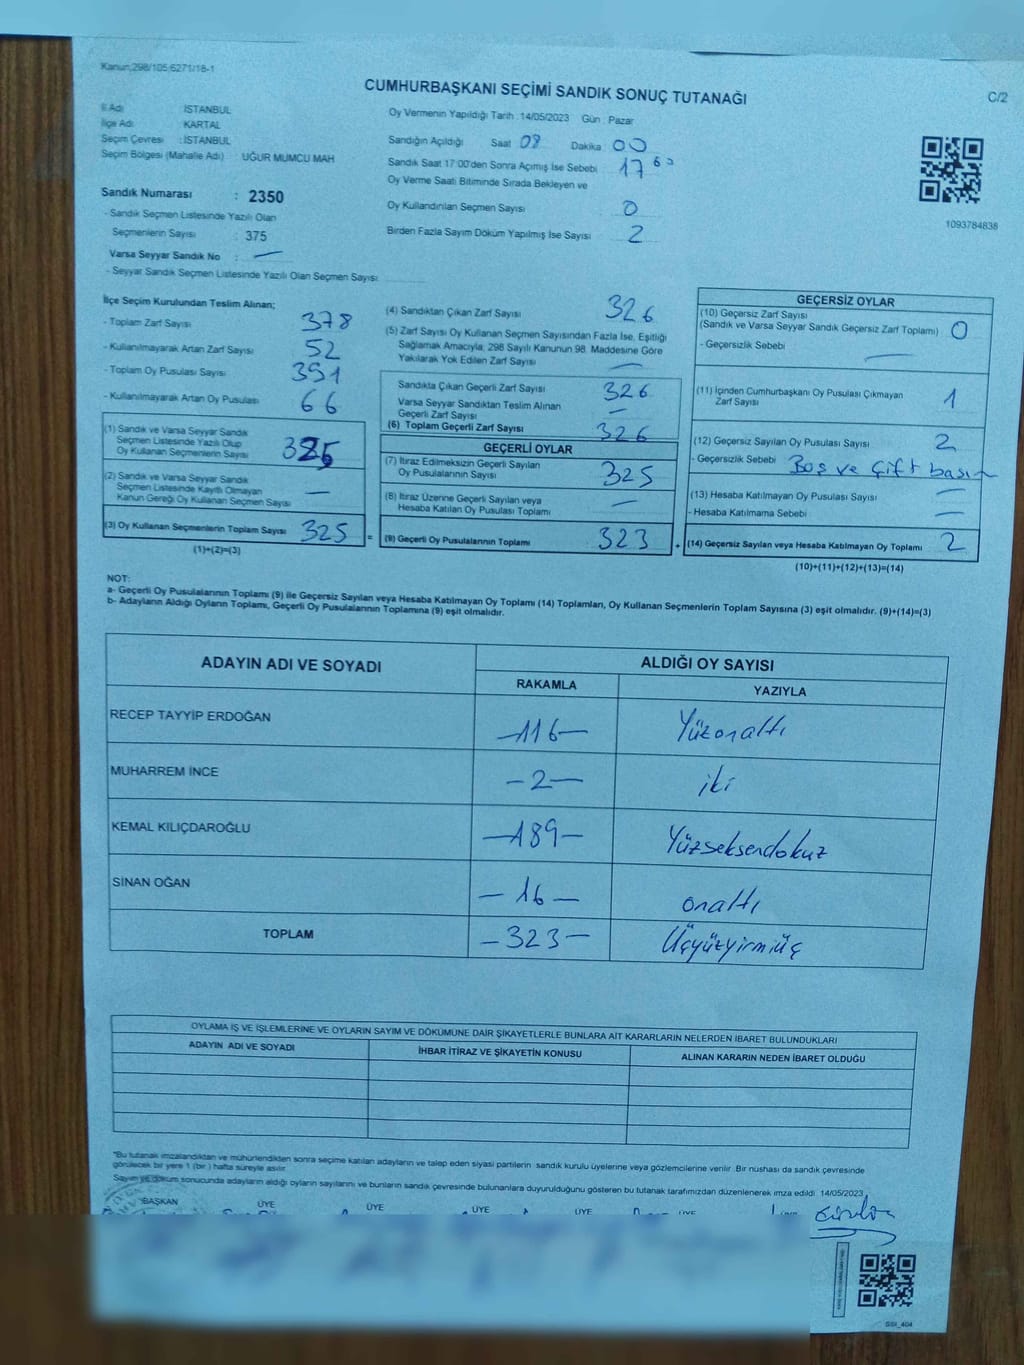 Kanun;298/105;6271/18-1
CUMHURBAŞKANI SEÇİMİ SANDIK SONUÇ TUTANAĞI
C/2
İl Adı : İSTANBUL
İlçe Adı : KARTAL
Seçim Çevresi : İSTANBUL
Seçim Bölgesi (Mahalle Adı) : UĞUR MUMCU MAH
Oy Vermenin Yapıldığı Tarih :14/05/2023 Gün : Pazar
Sandığın Açıldığı Saat 08 Dakika 00
Sandık Saat 17:00'den Sonra Açımış İse Sebebi 17
Oy Verme Saati Bitiminde Sırada Bekleyen ve
Oy Kullandırılan Seçmen Sayısı 0
Birden Fazla Sayım Döküm Yapılmış İse Sayısı 2
1093784838
Sandık Numarası : 2350
- Sandık Seçmen Listesinde Yazılı Olan
Seçmenlerin Sayısı : 375
Varsa Seyyar Sandık No : —
- Seyyar Sandık Seçmen Listesinde Yazılı Olan Seçmen Sayısı:
İlçe Seçim Kurulundan Teslim Alınan;
- Toplam Zarf Sayısı 378
- Kullanılmayarak Artan Zarf Sayısı 52
- Toplam Oy Pusulası Sayısı 391
- Kullanılmayarak Artan Oy Pusulası 66
(1) Sandık ve Varsa Seyyar Sandık
Seçmen Listesinde Yazılı Olup
Oy Kullanan Seçmenlerin Sayısı 325
(2) Sandık ve Varsa Seyyar Sandık
Seçmen Listesinde Kayıtlı Olmayan
Kanun Gereği Oy Kullanan Seçmen Sayısı —
(3) Oy Kullanan Seçmenlerin Toplam Sayısı 325
(1)+(2)=(3)
(4) Sandıktan Çıkan Zarf Sayısı 326
(5) Zarf Sayısı Oy Kullanan Seçmen Sayısından Fazla İse, Eşitliği
Sağlamak Amacıyla, 298 Sayılı Kanunun 98. Maddesine Göre
Yakılarak Yok Edilen Zarf Sayısı —
Sandıkta Çıkan Geçerli Zarf Sayısı 326
Varsa Seyyar Sandıktan Teslim Alınan
Geçerli Zarf Sayısı —
(6) Toplam Geçerli Zarf Sayısı 326
GEÇERLİ OYLAR
(7) İtiraz Edilmeksizin Geçerli Sayılan
Oy Pusulalarının Sayısı 325
(8) İtiraz Üzerine Geçerli Sayılan veya
Hesaba Katılan Oy Pusulası Toplamı —
= (9) Geçerli Oy Pusulalarının Toplamı 323 +
GEÇERSİZ OYLAR
(10) Geçersiz Zarf Sayısı
(Sandık ve Varsa Seyyar Sandık Geçersiz Zarf Toplamı) 0
- Geçersizlik Sebebi —
(11) İçinden Cumhurbaşkanı Oy Pusulası Çıkmayan
Zarf Sayısı 1
(12) Geçersiz Sayılan Oy Pusulası Sayısı 2
- Geçersizlik Sebebi Boş ve Çift basım
(13) Hesaba Katılmayan Oy Pusulası Sayısı —
- Hesaba Katılmama Sebebi —
(14) Geçersiz Sayılan veya Hesaba Katılmayan Oy Toplamı 2
(10)+(11)+(12)+(13)=(14)
NOT:
a- Geçerli Oy Pusulalarının Toplamı (9) ile Geçersiz Sayılan veya Hesaba Katılmayan Oy Toplamı (14) Toplamları, Oy Kullanan Seçmenlerin Toplam Sayısına (3) eşit olmalıdır. (9)+(14)=(3)
b- Adayların Aldığı Oyların Toplamı, Geçerli Oy Pusulalarının Toplamına (9) eşit olmalıdır.
ADAYIN ADI VE SOYADI ALDIĞI OY SAYISI
RAKAMLA YAZIYLA
RECEP TAYYİP ERDOĞAN —116— Yüzonaltı
MUHARREM İNCE —2— iki
KEMAL KILIÇDAROĞLU —189— Yüzseksendokuz
SİNAN OĞAN —16— onaltı
TOPLAM —323— Üçyüzyirmiüç
OYLAMA İŞ VE İŞLEMLERİNE VE OYLARIN SAYIM VE DÖKÜMÜNE DAİR ŞİKAYETLERLE BUNLARA AİT KARARLARIN NELERDEN İBARET BULUNDUKLARI
ADAYIN ADI VE SOYADI İHBAR İTİRAZ VE ŞİKAYETİN KONUSU ALINAN KARARIN NEDEN İBARET OLDUĞU
*Bu tutanak imzalandıktan ve mühürlendikten sonra seçime katılan adayların ve talep eden siyasi partilerin sandık kurulu üyelerine veya gözlemcilerine verilir. Bir nüshası da sandık çevresinde
görülecek bir yere 1 (bir ) hafta süreyle asılır.
Sayım ve döküm sonucunda adayların aldığı oyların sayılarını ve bunların sandık çevresinde bulunanlara duyurulduğunu gösteren bu tutanak tarafımızdan düzenlenerek imza edildi. 14/05/2023
BAŞKAN ÜYE ÜYE ÜYE ÜYE ÜYE
SSI_404